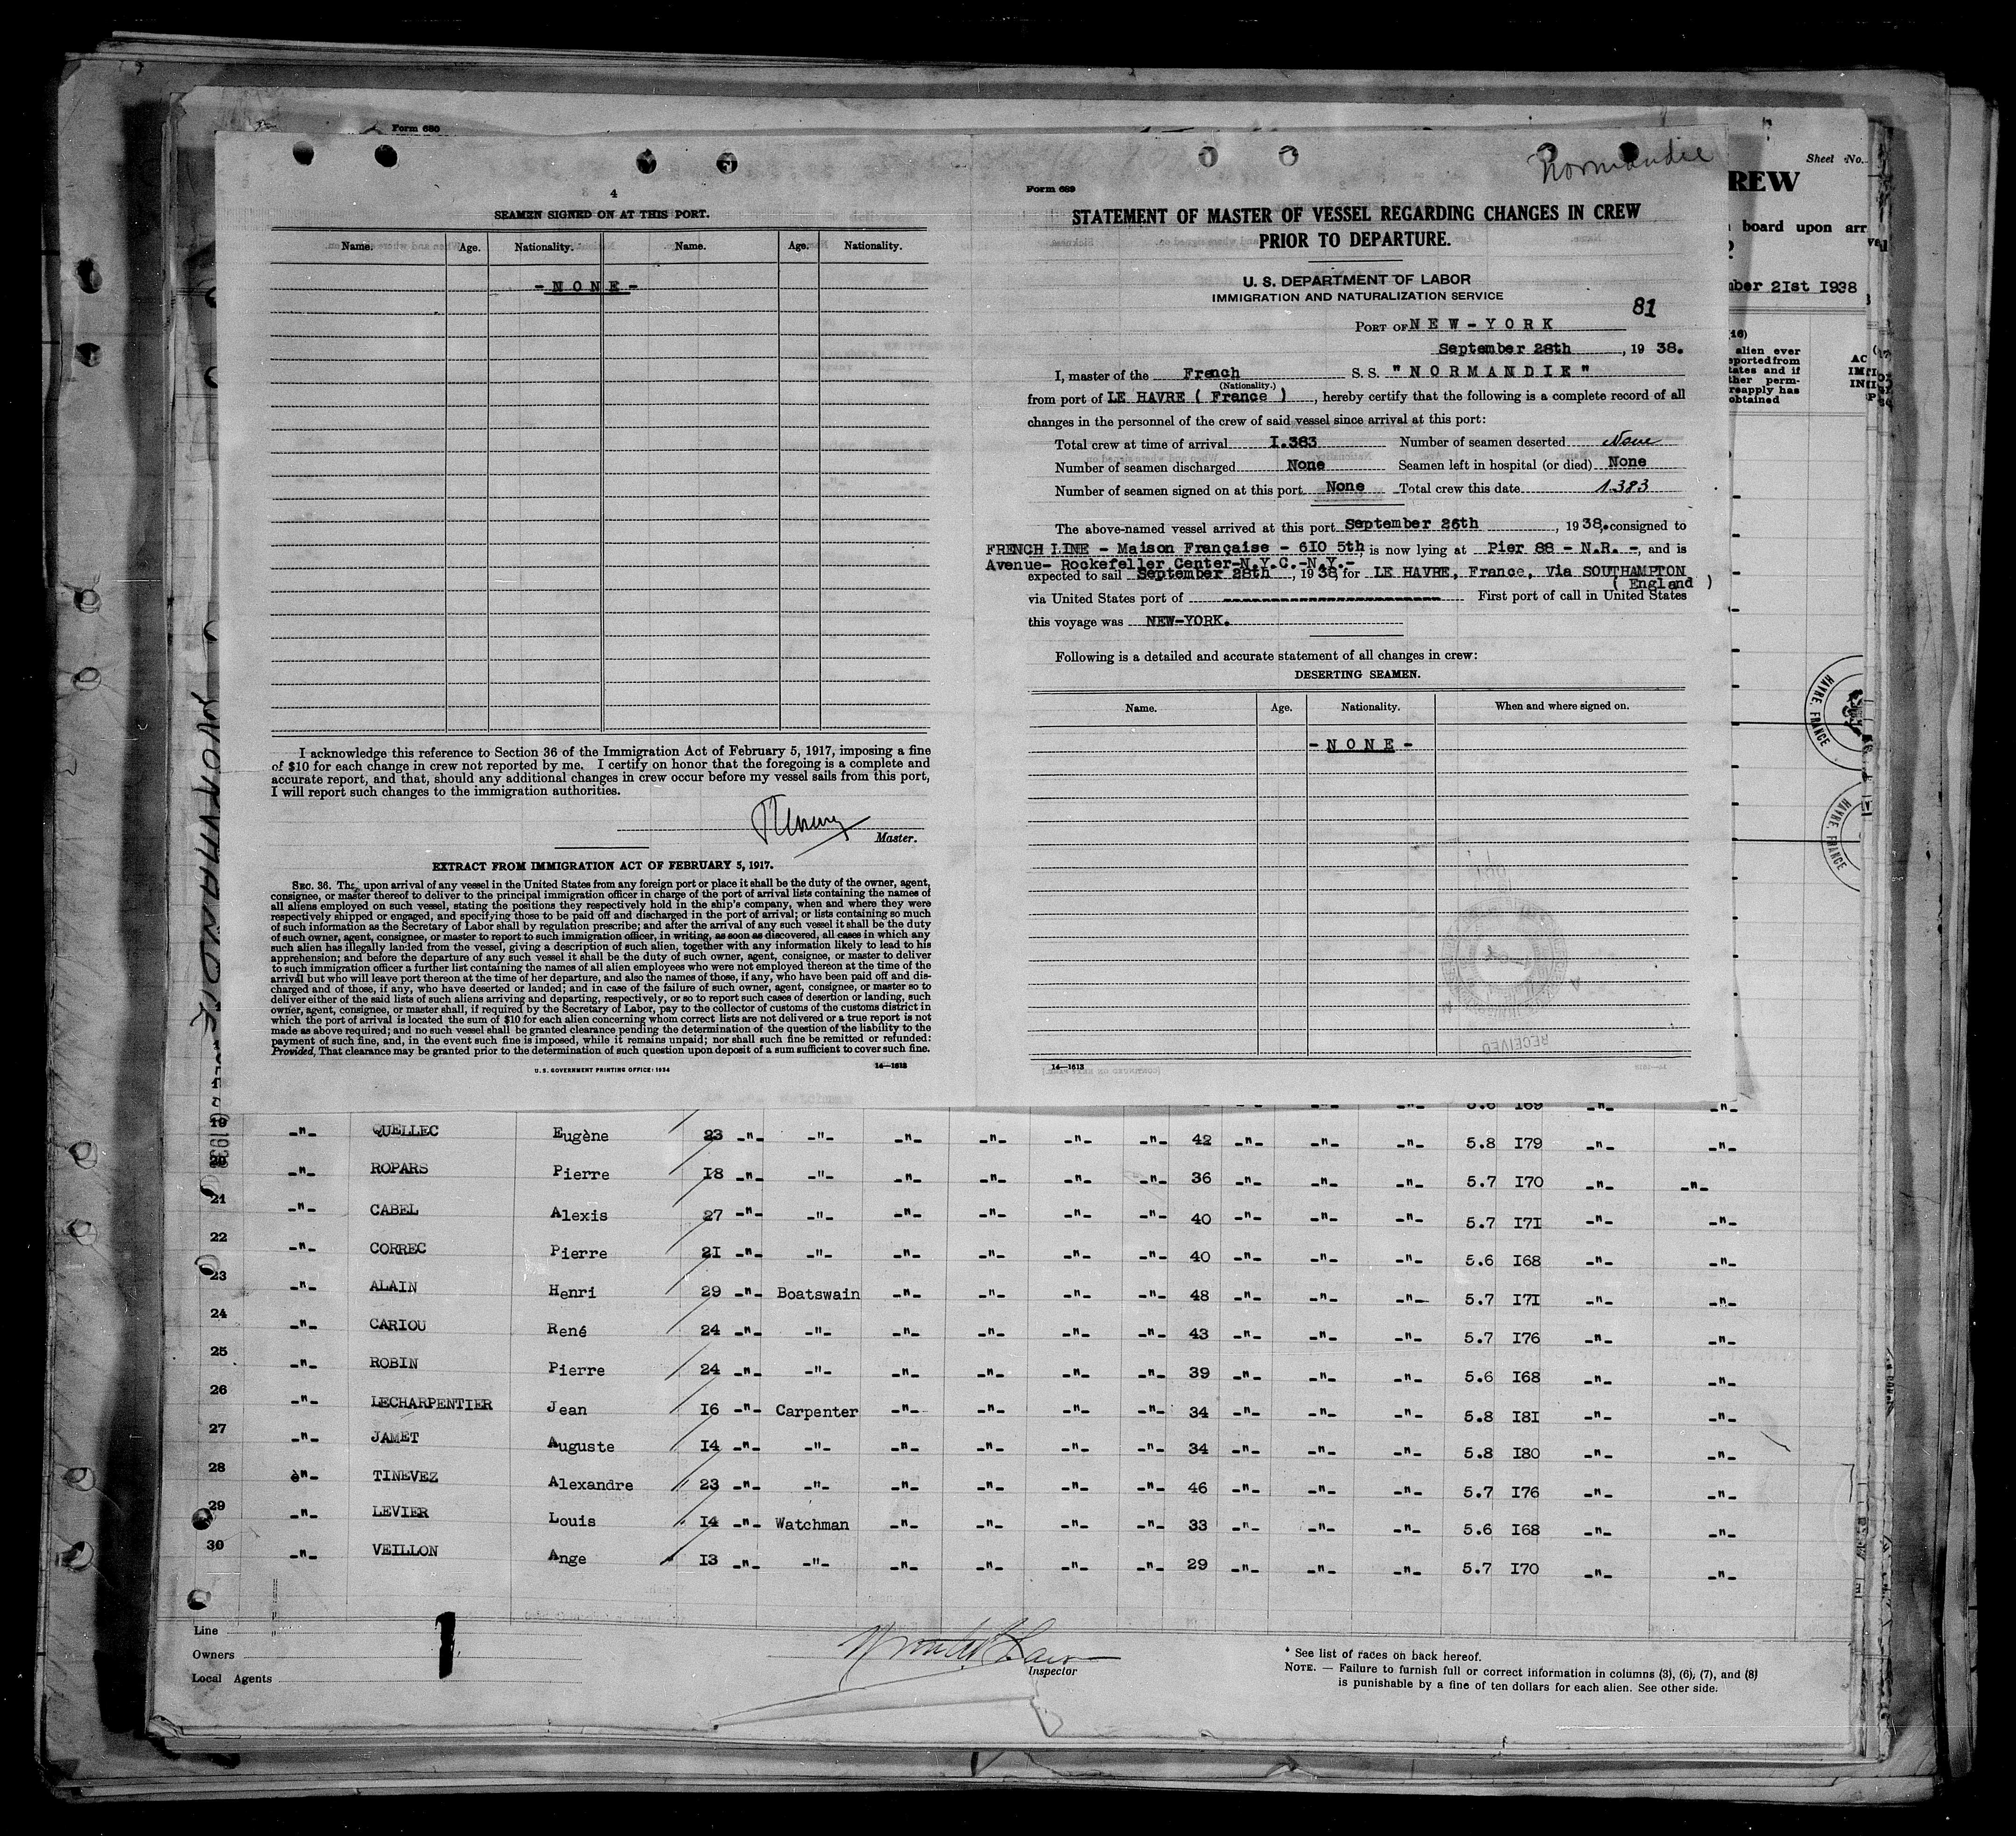 Form 680
4
SEAMEN SIGNED ON AT THIS PORT.
Name. Age. Nationality. Name. Age. Nationality.
- N O N E -
I acknowledge this reference to Section 36 of the Immigration Act of February 5, 1917, imposing a fine
of $10 for each change in crew not reported by me. I certify on honor that the foregoing is a complete and
accurate report, and that, should any additional changes in crew occur before my vessel sails from this port,
I will report such changes to the immigration authorities.
Master.
EXTRACT FROM IMMIGRATION ACT OF FEBRUARY 5, 1917.
SEC. 36. That upon arrival of any vessel in the United States from any foreign port or place it shall be the duty of the owner, agent,
consignee, or master thereof to deliver to the principal immigration officer in charge of the port of arrival lists containing the names of
all aliens employed on such vessel, stating the positions they respectively hold in the ship's company, when and where they were
respectively shipped or engaged, and specifying those to be paid off and discharged in the port of arrival; or lists containing so much
of such information as the Secretary of Labor shall by regulation prescribe; and after the arrival of any such vessel it shall be the duty
of such owner, agent, consignee, or master to report to such immigration officer, in writing, as soon as discovered, all cases in which any
such alien has illegally landed from the vessel, giving a description of such alien, together with any information likely to lead to his
apprehension; and before the departure of any such vessel it shall be the duty of such owner, agent, consignee, or master to deliver
to such immigration officer a further list containing the names of all alien employees who were not employed thereon at the time of the
arrival but who will leave port thereon at the time of her departure, and also the names of those, if any, who have been paid off and dis-
charged and of those, if any, who have deserted or landed; and in case of the failure of such owner, agent, consignee, or master so to
deliver either of the said lists of such aliens arriving and departing, respectively, or so to report such cases of desertion or landing, such
owner, agent, consignee, or master shall, if required by the Secretary of Labor, pay to the collector of customs of the customs district in
which the port of arrival is located the sum of $10 for each alien concerning whom correct lists are not delivered or a true report is not
made as above required; and no such vessel shall be granted clearance pending the determination of the question of the liability to the
payment of such fine, and, in the event such fine is imposed, while it remains unpaid; nor shall such fine be remitted or refunded:
Provided, That clearance may be granted prior to the determination of such question upon deposit of a sum sufficient to cover such fine.
U. S. GOVERNMENT PRINTING OFFICE: 1934
14—1613
Normandie
Form 689
STATEMENT OF MASTER OF VESSEL REGARDING CHANGES IN CREW
PRIOR TO DEPARTURE.
U. S. DEPARTMENT OF LABOR
IMMIGRATION AND NATURALIZATION SERVICE
81
PORT OF N E W - Y O R K
September 28th , 19 38.
I, master of the French S. S. " N O R M A N D I E "
(Nationality.)
from port of LE HAVRE ( France ) , hereby certify that the following is a complete record of all
changes in the personnel of the crew of said vessel since arrival at this port:
Total crew at time of arrival I.383 Number of seamen deserted None
Number of seamen discharged None Seamen left in hospital (or died) None
Number of seamen signed on at this port None Total crew this date 1.383
The above-named vessel arrived at this port September 26th , 19 38, consigned to
FRENCH LINE - Maison Française - 6I0 5th, is now lying at Pier 88 - N.R. -, and is
Avenue- Rockefeller Center-N.Y.C.-N.Y.-
expected to sail September 28th , 19 38, for LE HAVRE, France, Via SOUTHAMPTON
( England )
via United States port of First port of call in United States
this voyage was NEW-YORK.
Following is a detailed and accurate statement of all changes in crew:
DESERTING SEAMEN.
Name. Age. Nationality. When and where signed on.
- N O N E -
14—1613
RECEIVED
Sheet No.
REW
board upon arr
ber 2Ist I938
alien ever
reported from
tates and if
ther perm-
reapply has
obtained
HAVRE, FRANCE
HAVRE, FRANCE
NORMANDIE
5.6 I69 -"- -"-
19 -"- QUELLEC Eugène 23 -"- -"- -"- -"- -"- -"- 42 -"- -"- -"- 5.8 I79 -"- -"-
20 -"- ROPARS Pierre I8 -"- -"- -"- -"- -"- -"- 36 -"- -"- -"- 5.7 I70 -"- -"-
21 -"- CABEL Alexis 27 -"- -"- -"- -"- -"- -"- 40 -"- -"- -"- 5.7 I7I -"- -"-
22 -"- CORREC Pierre 2I -"- -"- -"- -"- -"- -"- 40 -"- -"- -"- 5.6 I68 -"- -"-
23 -"- ALAIN Henri 29 -"- Boatswain -"- -"- -"- -"- 48 -"- -"- -"- 5.7 I7I -"- -"-
24 -"- CARIOU René 24 -"- -"- -"- -"- -"- -"- 43 -"- -"- -"- 5.7 I76 -"- -"-
25 -"- ROBIN Pierre 24 -"- -"- -"- -"- -"- -"- 39 -"- -"- -"- 5.6 I68 -"- -"-
26 -"- LECHARPENTIER Jean I6 -"- Carpenter -"- -"- -"- -"- 34 -"- -"- -"- 5.8 I8I -"- -"-
27 -"- JAMET Auguste I4 -"- -"- -"- -"- -"- -"- 34 -"- -"- -"- 5.8 I80 -"- -"-
28 è"- TINEVEZ Alexandre 23 -"- -"- -"- -"- -"- -"- 46 -"- -"- -"- 5.7 I76 -"- -"-
29 -"- LEVIER Louis I4 -"- Watchman -"- -"- -"- -"- 33 -"- -"- -"- 5.6 I68 -"- -"-
30 -"- VEILLON Ange I3 -"- -"- -"- -"- -"- -"- 29 -"- -"- -"- 5.7 I70 -"- -"-
Line
Owners
Local Agents
1
Inspector
* See list of races on back hereof.
NOTE. — Failure to furnish full or correct information in columns (3), (6), (7), and (8)
is punishable by a fine of ten dollars for each alien. See other side.